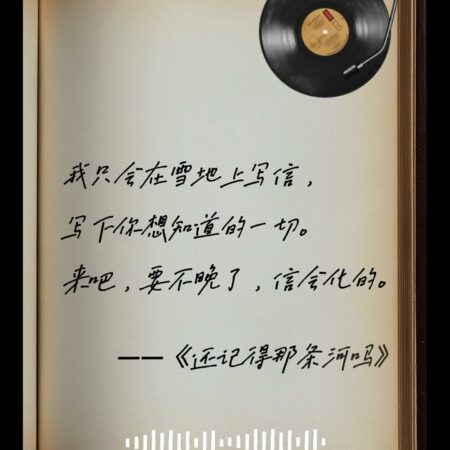 我只会在雪地上写信，
写下你想知道的一切。
来吧，要不晚了，信会化的。
——《还记得那条河吗》